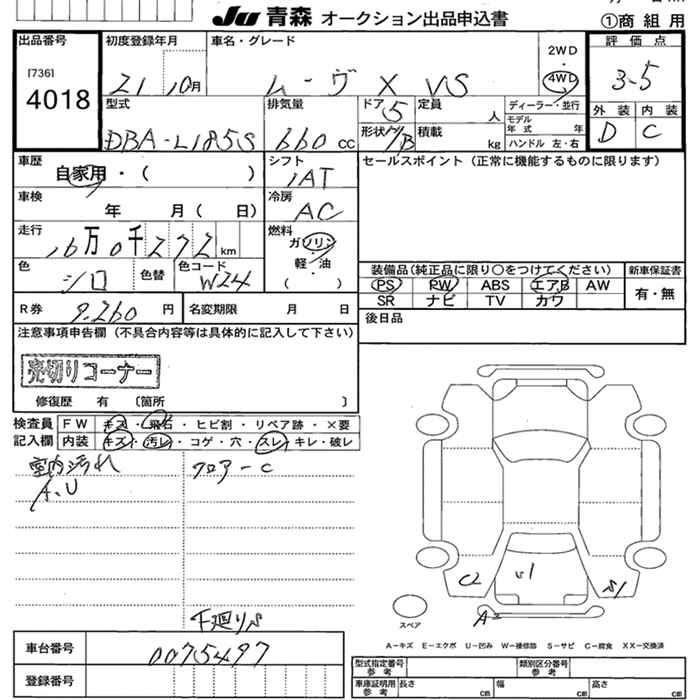 Ju 青森 オークション出品申込書
①商 組 用
出品番号
[736]
4018
初度登録年月
21 10月
車名・グレード
ムーヴ X VS
2WD
・
4WD
評価点
3-5
外装 内装
D C
型式
DBA-L185S
排気量
660 cc
ドア
5
形状
/B
定員
人
積載
kg
ディーラー・並行
モデル年式 年
ハンドル 左・右
車歴
自家用・( )
シフト
IAT
セールスポイント (正常に機能するものに限ります)
車検
年 月( 日)
冷房
AC
走行
16万0千272km
燃料
ガソリン
・
軽・油
( )
色
シロ
色替
色コード
W24
装備品(純正品に限り○をつけてください)
新車保証書
PS PW ABS エアB AW
SR ナビ TV カワ
有・無
R券
9.260 円
名変期限 月 日
後日品
注意事項申告欄 (不具合内容等は具体的に記入して下さい)
売切りコーナー
修復歴 有 〔箇所 〕
検査員
記入欄
FW キズ・飛石・ヒビ割・リペア跡・×要
内装 キズ・汚レ・コゲ・穴・スレ・キレ・破レ
室内汚れ フロアーC
A、U
C2 U1 S1
A
スペア
A－キズ E－エクボ U－凹み W－補修跡 S－サビ C－腐食 XX－交換済
下廻りS
車台番号
0075497
登録番号
型式指定番号
参考
類別区分番号
参考
車庫証明用
参考
長さ cm
幅 cm
高さ cm